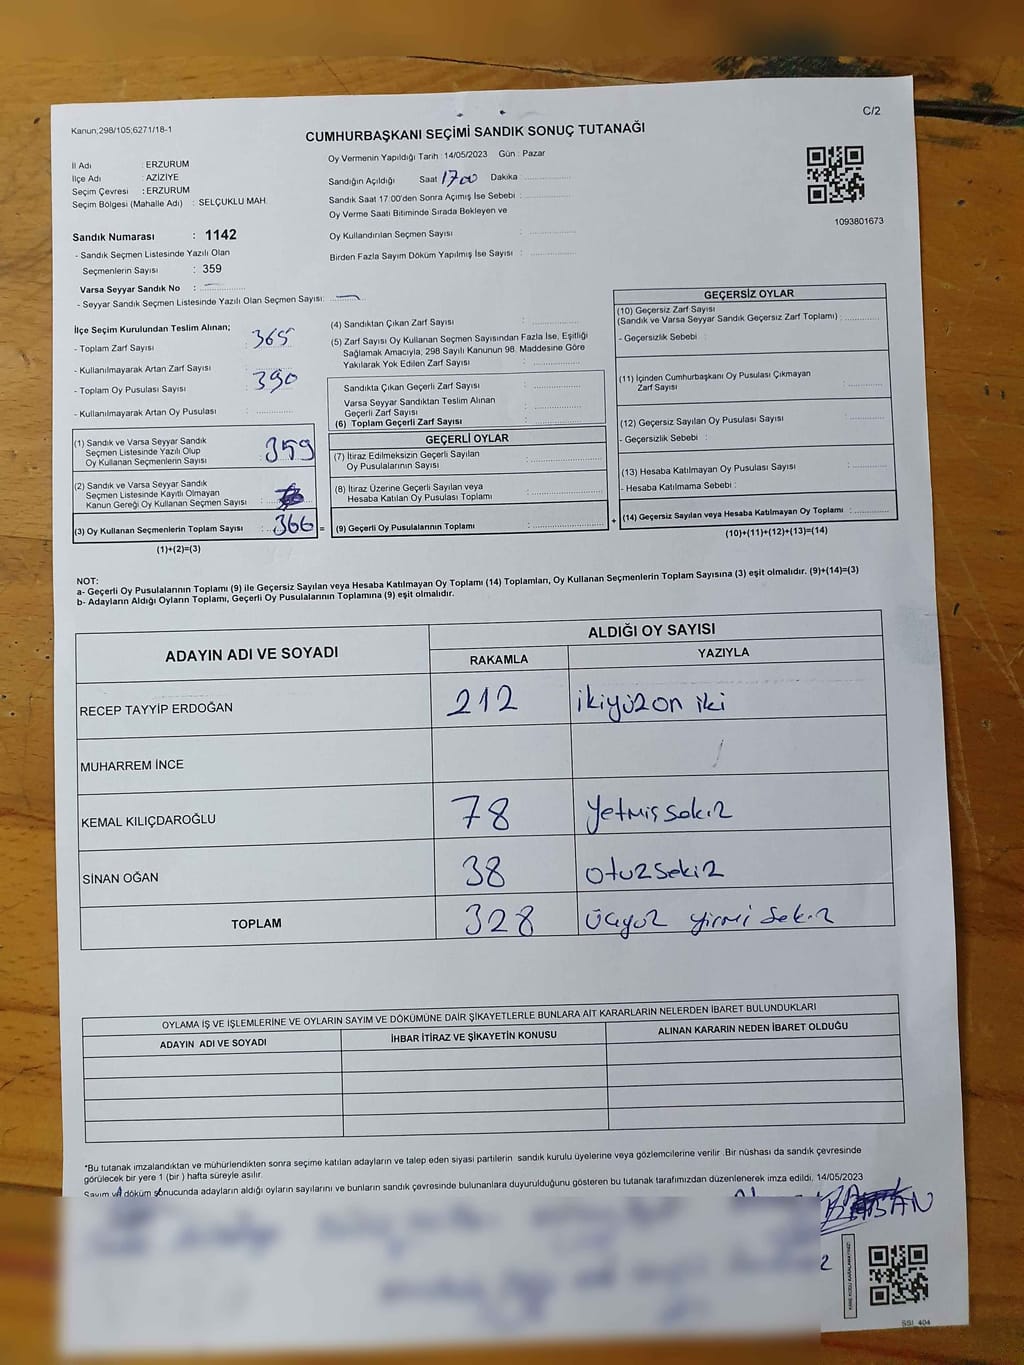 Kanun;298/105;6271/18-1
C/2
CUMHURBAŞKANI SEÇİMİ SANDIK SONUÇ TUTANAĞI
İl Adı : ERZURUM
İlçe Adı : AZİZİYE
Seçim Çevresi : ERZURUM
Seçim Bölgesi (Mahalle Adı) : SELÇUKLU MAH.
Sandık Numarası : 1142
- Sandık Seçmen Listesinde Yazılı Olan
Seçmenlerin Sayısı : 359
Varsa Seyyar Sandık No :
- Seyyar Sandık Seçmen Listesinde Yazılı Olan Seçmen Sayısı:
Oy Vermenin Yapıldığı Tarih : 14/05/2023 Gün : Pazar
Sandığın Açıldığı Saat 1700 Dakika :
Sandık Saat 17:00'den Sonra Açımış İse Sebebi :
Oy Verme Saati Bitiminde Sırada Bekleyen ve
Oy Kullandırılan Seçmen Sayısı :
Birden Fazla Sayım Döküm Yapılmış İse Sayısı :
1093801673
İlçe Seçim Kurulundan Teslim Alınan;
- Toplam Zarf Sayısı : 365
- Kullanılmayarak Artan Zarf Sayısı :
- Toplam Oy Pusulası Sayısı : 390
- Kullanılmayarak Artan Oy Pusulası :
(1) Sandık ve Varsa Seyyar Sandık
Seçmen Listesinde Yazılı Olup
Oy Kullanan Seçmenlerin Sayısı : 359
(2) Sandık ve Varsa Seyyar Sandık
Seçmen Listesinde Kayıtlı Olmayan
Kanun Gereği Oy Kullanan Seçmen Sayısı :
(3) Oy Kullanan Seçmenlerin Toplam Sayısı : 366 =
(1)+(2)=(3)
(4) Sandıktan Çıkan Zarf Sayısı :
(5) Zarf Sayısı Oy Kullanan Seçmen Sayısından Fazla İse, Eşitliği
Sağlamak Amacıyla, 298 Sayılı Kanunun 98. Maddesine Göre
Yakılarak Yok Edilen Zarf Sayısı :
Sandıkta Çıkan Geçerli Zarf Sayısı :
Varsa Seyyar Sandıktan Teslim Alınan
Geçerli Zarf Sayısı :
(6) Toplam Geçerli Zarf Sayısı :
GEÇERLİ OYLAR
(7) İtiraz Edilmeksizin Geçerli Sayılan
Oy Pusulalarının Sayısı :
(8) İtiraz Üzerine Geçerli Sayılan veya
Hesaba Katılan Oy Pusulası Toplamı :
(9) Geçerli Oy Pusulalarının Toplamı : +
GEÇERSİZ OYLAR
(10) Geçersiz Zarf Sayısı
(Sandık ve Varsa Seyyar Sandık Geçersiz Zarf Toplamı) :
- Geçersizlik Sebebi :
(11) İçinden Cumhurbaşkanı Oy Pusulası Çıkmayan
Zarf Sayısı :
(12) Geçersiz Sayılan Oy Pusulası Sayısı :
- Geçersizlik Sebebi :
(13) Hesaba Katılmayan Oy Pusulası Sayısı :
- Hesaba Katılmama Sebebi :
(14) Geçersiz Sayılan veya Hesaba Katılmayan Oy Toplamı :
(10)+(11)+(12)+(13)=(14)
NOT:
a- Geçerli Oy Pusulalarının Toplamı (9) ile Geçersiz Sayılan veya Hesaba Katılmayan Oy Toplamı (14) Toplamları, Oy Kullanan Seçmenlerin Toplam Sayısına (3) eşit olmalıdır. (9)+(14)=(3)
b- Adayların Aldığı Oyların Toplamı, Geçerli Oy Pusulalarının Toplamına (9) eşit olmalıdır.
ADAYIN ADI VE SOYADI
ALDIĞI OY SAYISI
RAKAMLA YAZIYLA
RECEP TAYYİP ERDOĞAN 212 ikiyüzon iki
MUHARREM İNCE
KEMAL KILIÇDAROĞLU 78 yetmiş sekiz
SİNAN OĞAN 38 otuzsekiz
TOPLAM 328 üçyüz yirmi sekiz
OYLAMA İŞ VE İŞLEMLERİNE VE OYLARIN SAYIM VE DÖKÜMÜNE DAİR ŞİKAYETLERLE BUNLARA AİT KARARLARIN NELERDEN İBARET BULUNDUKLARI
ADAYIN ADI VE SOYADI İHBAR İTİRAZ VE ŞİKAYETİN KONUSU ALINAN KARARIN NEDEN İBARET OLDUĞU
*Bu tutanak imzalandıktan ve mühürlendikten sonra seçime katılan adayların ve talep eden siyasi partilerin sandık kurulu üyelerine veya gözlemcilerine verilir .Bir nüshası da sandık çevresinde
görülecek bir yere 1 (bir ) hafta süreyle asılır.
Sayım ve döküm sonucunda adayların aldığı oyların sayılarını ve bunların sandık çevresinde bulunanlara duyurulduğunu gösteren bu tutanak tarafımızdan düzenlenerek imza edildi. 14/05/2023
2
KARE KODU KARALAMAYINIZ!
SSI_404